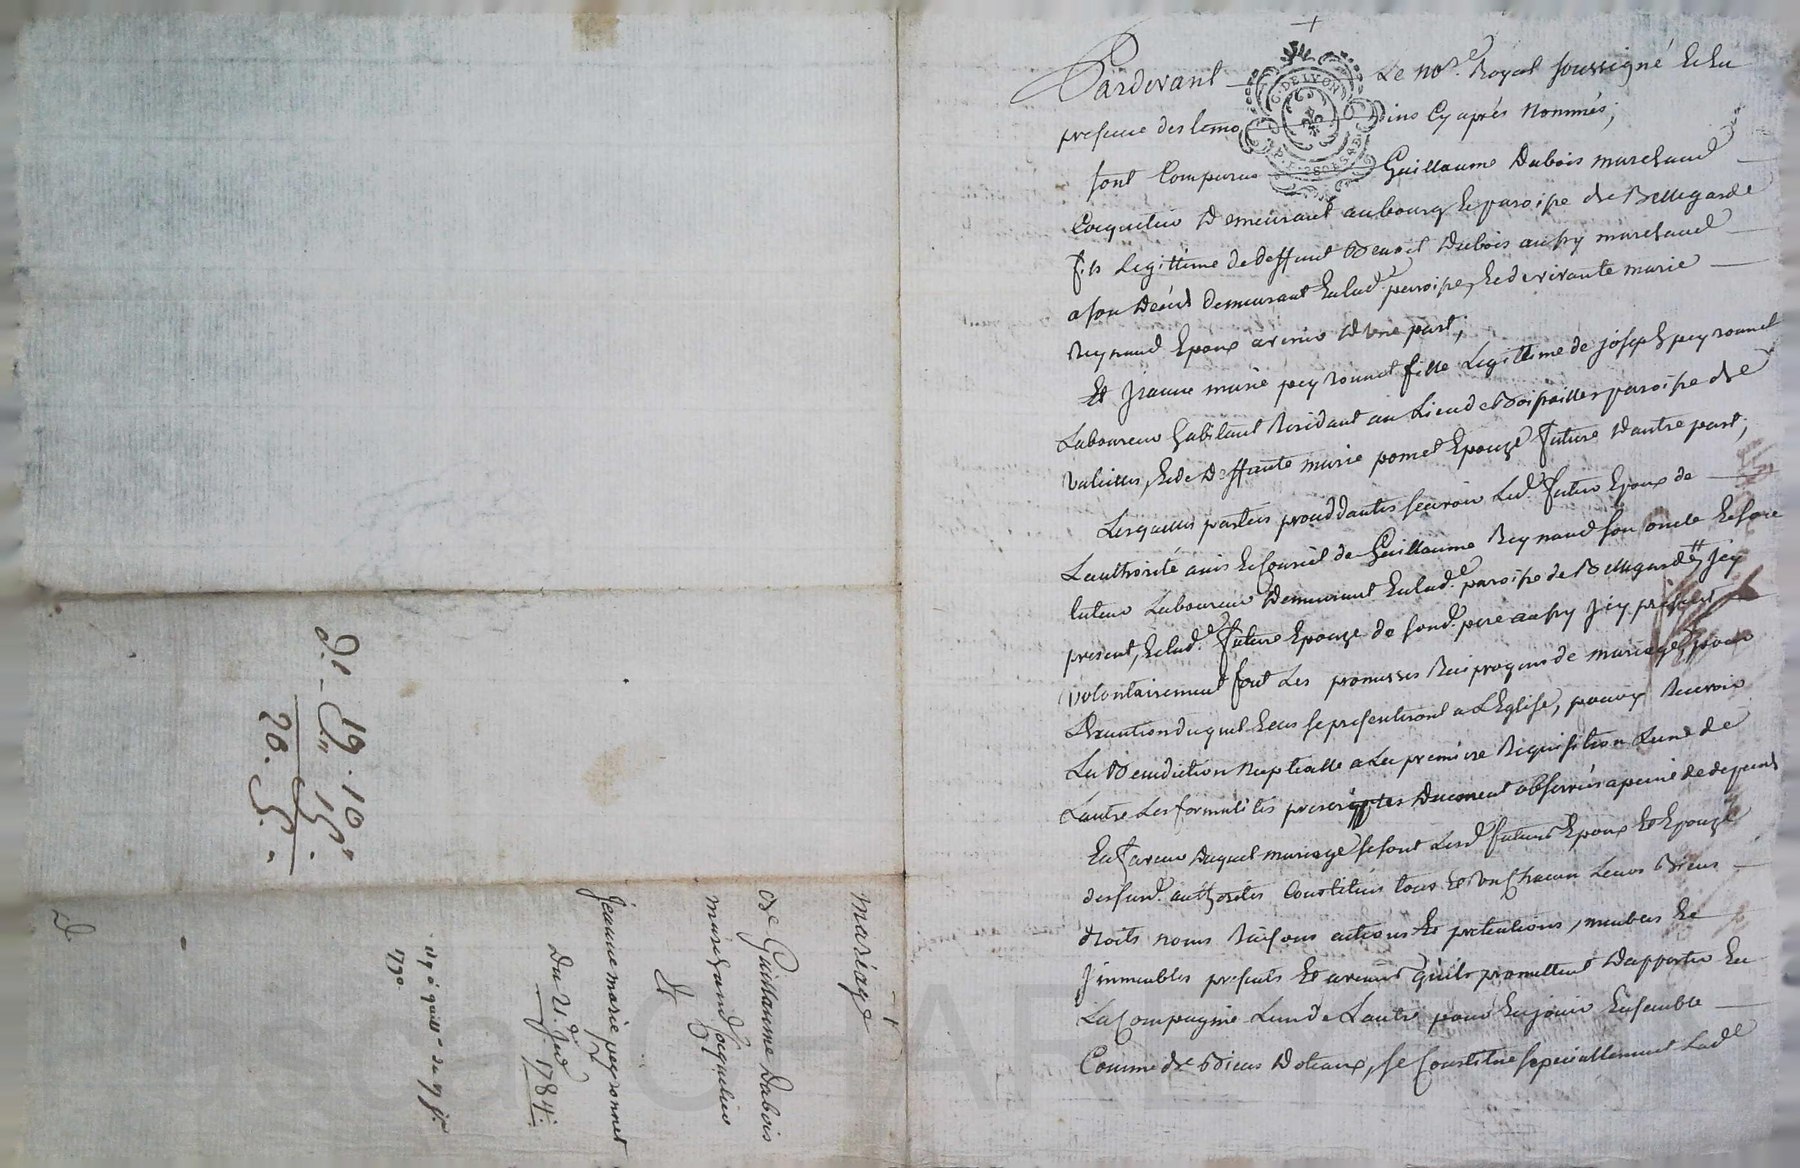 Pardevant Le no.re Royal soussigné Et En
presence des temoins Cy après Nommés;
sont Comparus Guillaume Dubois marchand
Coquetier Demeurant au bourg & paroisse de Bellegarde
fils Legittime de deffunt Benoit Dubois aussy marchand
a son Décès demeurant En lad.e paroisse, & de vivante marie
Reynaud Epoux avenir D'une part;
Et Jeanne marie peyronnet fille Legittime de joseph peyronnet
Laboureur habitant Residant au Lieu de paroisse de
Valeilles, & de Deffunte marie pomet Epouze future D'autre part;
Lesquelles parties proceddantes sçavoir Led. futur Epoux de
Lauthorité avis & Conseil de Guillaume Reynaud son oncle &
tuteur Laboureur Demeurant En lad.e paroisse de Bellegarde Jcy
present, & lad.e future Epouze de sond. pere aussy Jcy present
volontairement font Les promesses Reciproques de mariage, pour
L'Execution duquel Elles se presenteront a L'Eglise, pour y Recevoir
La Benediction Nuptialle a La premiere Requisition L'une de
L'autre Les formalités prescriptes Duement observées a peine de depens
En faveur Duquel mariage se sont Lesd. futurs Epoux Et Epouze
desd. authorités Constitués tous Et Un Chacun Leurs Biens
droits noms Raisons actions Et pretentions, meubles &
Jmmeubles presents Et avenir qu'ils promettent D'apporter En
La Compagnie L'un de L'autre pour En jouir Ensemble
Comme de Biens Dotaux, se Constitue specialement Lad.e
G. DE LYON
mariage
de Guillaume Dubois
marchand Coquetier
Et
Jeanne marie peyronnet
Du 21.e 1784.
1790
19. 10
15
20. 5.